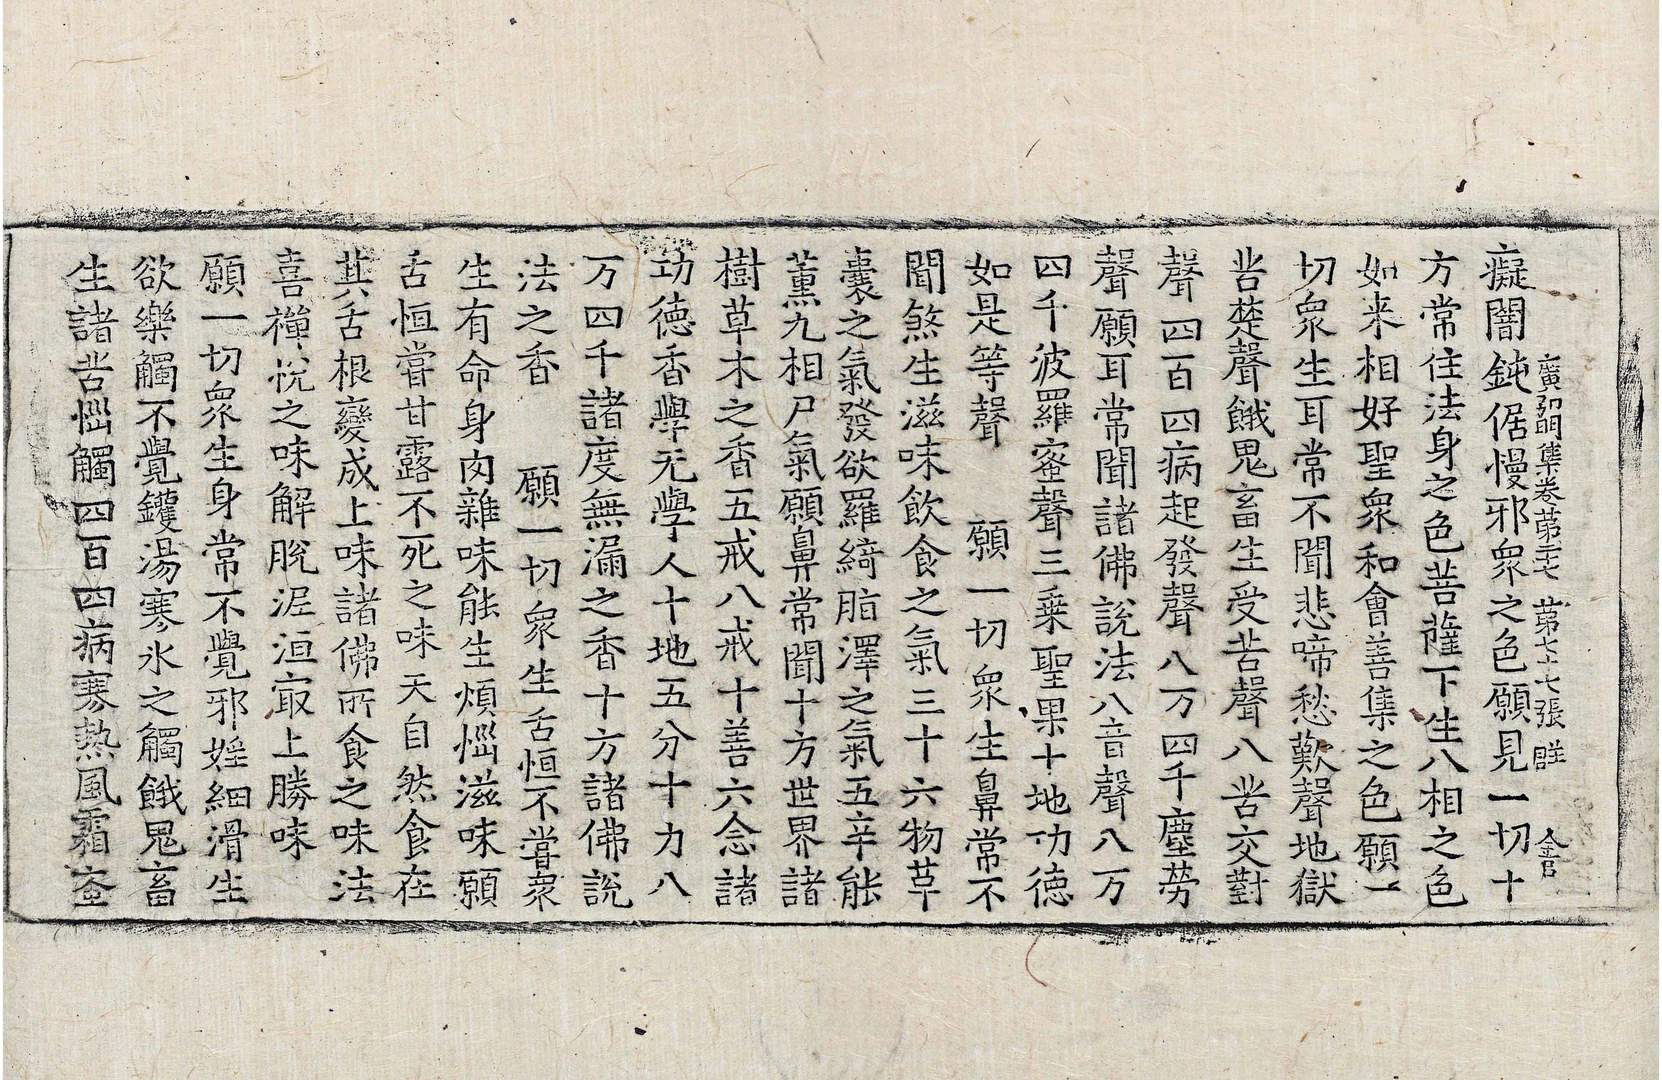 癡闇鈍倨慢邪衆之色願見一切十
廣弘明集卷第二十七 第七十七張 群 金君
方常住法身之色菩薩下生八相之色
如来相好聖衆和會善集之色願一
切衆生耳常不聞悲啼愁歎聲地獄
苦楚聲餓鬼畜生受苦聲八苦交對
聲四百四病起發聲八万四千塵勞
聲願耳常聞諸佛說法八音聲八万
四千波羅蜜聲三乗聖果十地功德
如是等聲 願一切衆生鼻常不
聞煞生滋味飲食之氣三十六物草
囊之氣發欲羅綺脂澤之氣五辛能
薰九相尸氣願鼻常聞十方世界諸
樹草木之香五戒八戒十善六念諸
功德香學无學人十地五分十力八
万四千諸度無漏之香十方諸佛說
法之香 願一切衆生舌恒不嘗衆
生有命身肉雜味能生煩惱滋味願
舌恒嘗甘露不死之味天自然食在
其舌根變成上味諸佛所食之味法
喜禪悅之味解脫泥洹㝡上勝味
願一切衆生身常不覺邪婬細滑生
欲樂觸不覺鑊湯寒氷之觸餓鬼畜
生諸苦惱觸四百四病寒熱風霜蚉